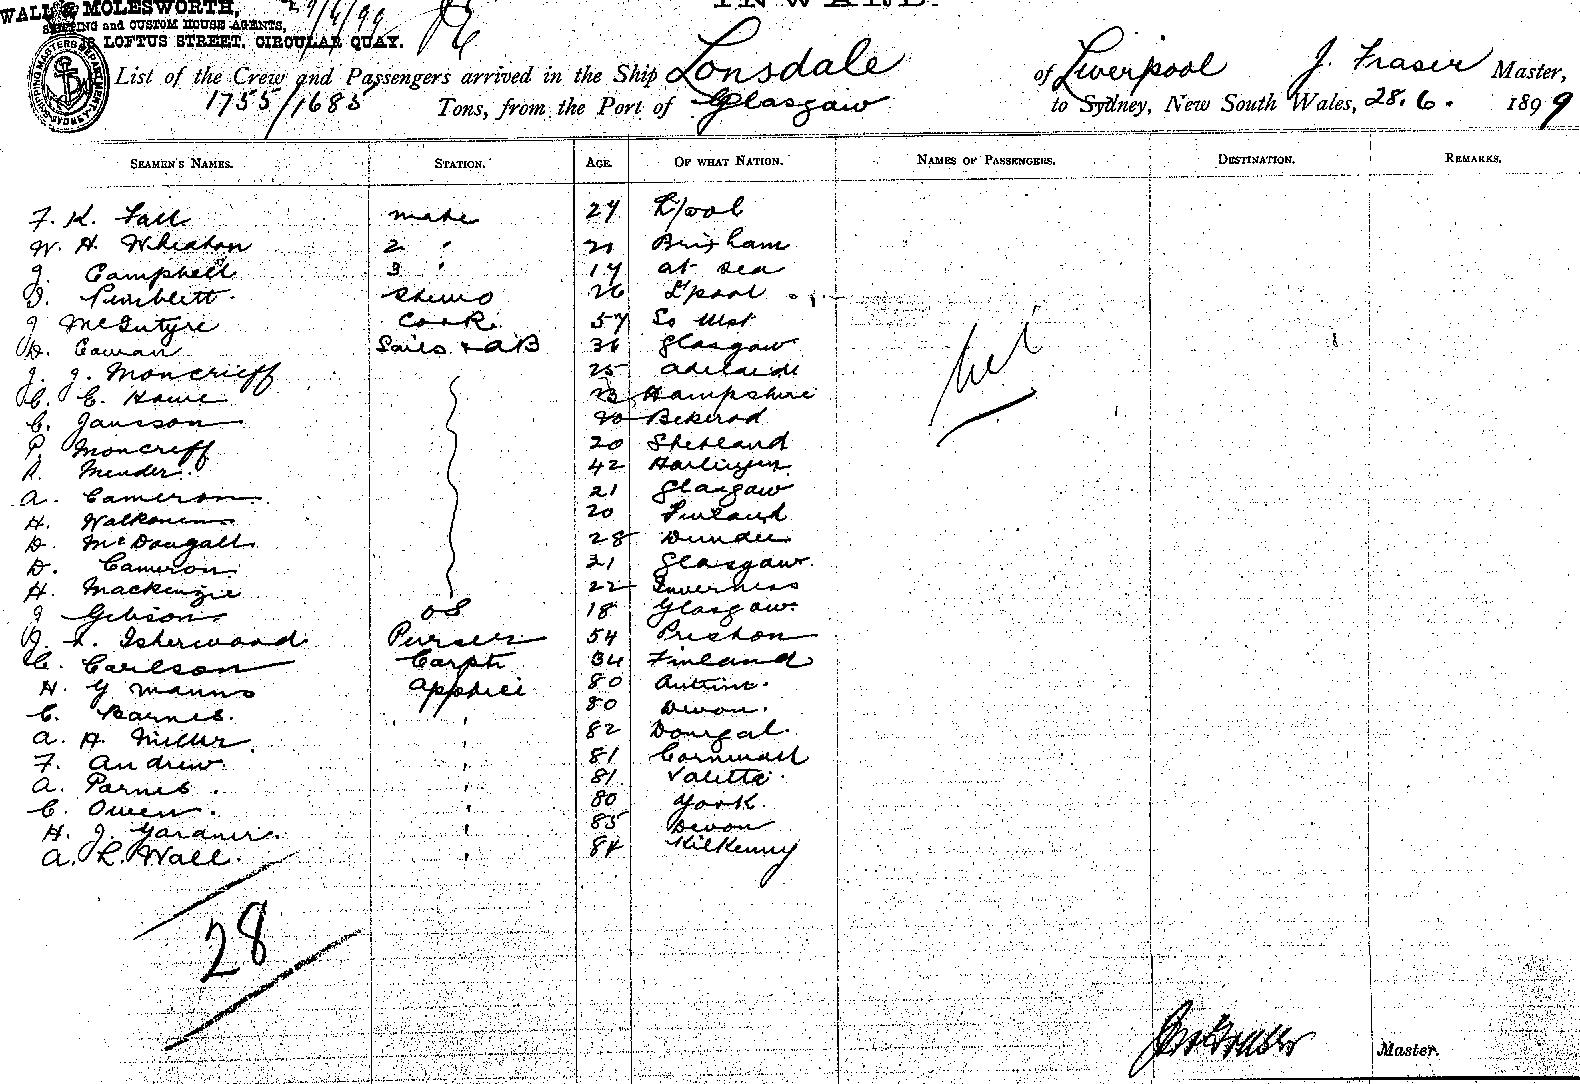 INWARD.
WALL & MOLESWORTH,
SHIPPING and CUSTOM HOUSE AGENTS,
LOFTUS STREET, CIRCULAR QUAY.
29/6/99
List of the Crew and Passengers arrived in the Ship Lonsdale of Liverpool J. Fraser Master,
1755/1685 Tons, from the Port of Glasgow to Sydney, New South Wales, 28.6. 1899
SEAMEN'S NAMES. STATION. AGE. OF WHAT NATION. NAMES OF PASSENGERS. DESTINATION. REMARKS.
F. K. mate L/pool
W. H. Wheaton 2 " Brixham
J. Campbell 3 " 19 at sea
Pimblett 26 L'pool
J McIntyre Cook 57
D. Cowan Sails & AB 36 Glasgow
J. J. Moncrieff 25 Adelaide
C. C. Howe 23 Hampshire
C. Jansson 20
P. Moncreff 20 Shetland
42 Harlingen
A. Cameron 21 Glasgow
H. Walkonen 20 Finland
D. McDougall 28 Dundee
D. Cameron 21 Glasgow
H. Mackenzie 22 Inverness
J Gibson OS 18 Glasgow
J. L. Isherwood Purser 54 Preston
C. Carlson Carptr 34 Finland
H. G Manns 80 Antrim.
C. Barnes. " 80 Devon.
A. H. Miller " 82 Donegal.
F. Andrew " 81 Cornwall
A. Parnis. " 81 Valetta.
C. Owen. " 80 York.
H. J. Gardner. " 85 Devon
A. R. Wall. " 84 Kilkenny
28
Master.